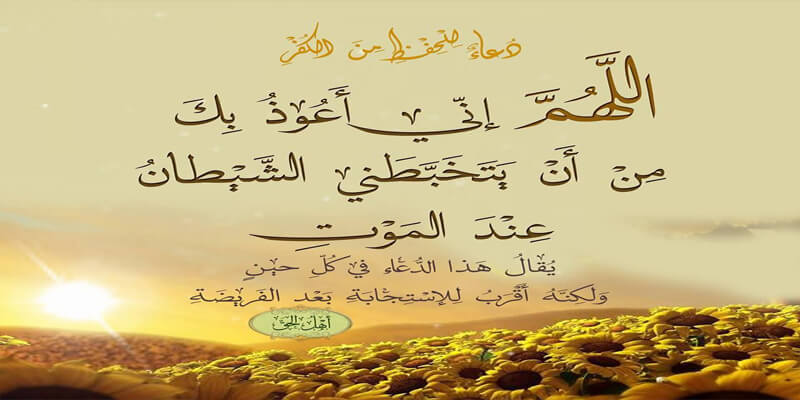 دُعاءٌ لِلحِفْظِ مِنَ الكُفْرِ
اللَّهُمَّ إِنّي أَعُوذُ بِكَ
مِنْ أَنْ يَتَخَبَّطَني الشَّيْطانُ
عِنْدَ المَوْتِ
يُقَالُ هَذا الدُّعَّاءِ فِي كُلِّ حينٍ
وَلَكِنَّهُ أَقْرَبُ لِلإسْتِجَابَةِ بَعْد الفَرِيضَة
أهل الحق